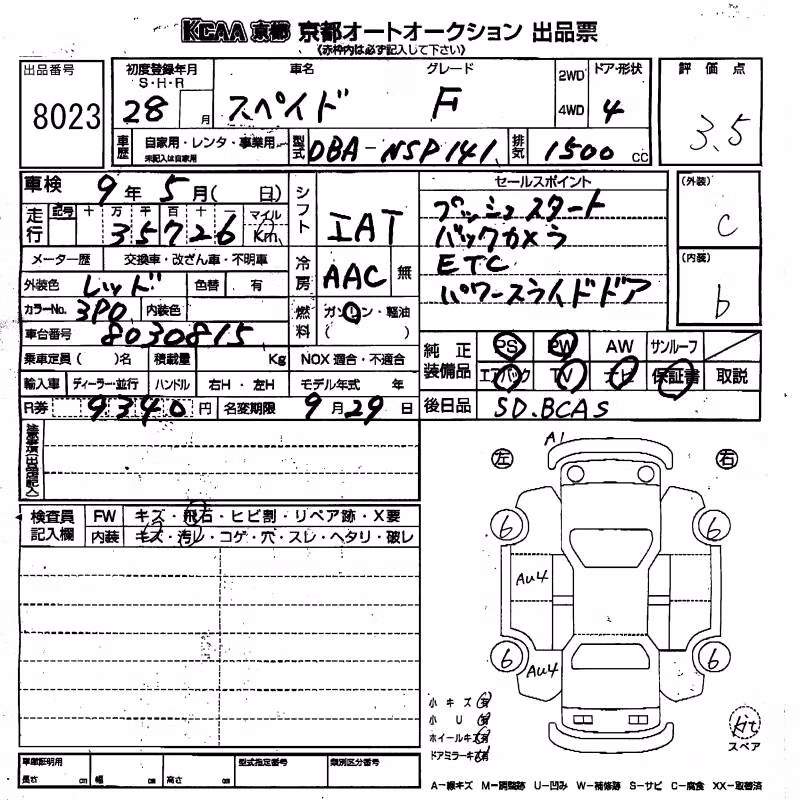 KCAA 京都 京都オートオークション 出品票
《赤枠内は必ず記入して下さい》
出品番号
8023
初度登録年月
S・H・R
28 月
車名
スペイド
グレード
F
2WD
4WD
ドア・形状
4
評価点
3.5
車歴
自家用・レンタ・事業用
未記入は自家用
型式
DBA-NSP141
排気
1500 CC
車検 9年 5月( 日)
走行
記号 十 万 千 百 十 一 マイル
35726 Km
メーター歴 交換車・改ざん車・不明車
外装色 レッド 色替 有
カラーNo. 3P0 内装色
車台番号 8030815
乗車定員( )名 積載量 Kg
輸入車 ディーラー・並行 ハンドル 右H・左H
R券 9340円 名変期限 9月29日
シフト
IAT
冷房
AAC 無
燃料
ガソリン・軽油
( )
NOX 適合・不適合
モデル年式 年
セールスポイント
プッシュスタート
バックカメラ
ETC
パワースライドドア
(外装)
C
(内装)
b
純正装備品
PS PW AW サンルーフ
エアバック TV ナビ 保証書 取説
後日品 SD.BCAS
検査員記入欄
FW キズ・飛石・ヒビ割・リペア跡・X要
内装 キズ・汚レ・コゲ・穴・スレ・ヘタリ・破レ
左
右
A1
6
6
Au4
Au4
6
6
小キズ 有
小 U 有
ホイールキズ 有
ドアミラーキズ 有
kit
スペア
車庫証明用
長さ cm 幅 cm 高さ cm
型式指定番号
類別区分番号
A－線キズ M－調整跡 U－凹み W－補修跡 S－サビ C－腐食 XX－取替済